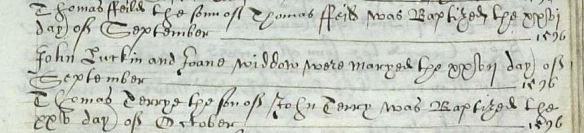 Thomas ffeild the sonn of Thomas ffeild was Baptized the xxvii
day of September 1596
John Lurkin and Joane widdow were maryed the xxvii day of
September 1596
Thomas Terrye the son of John Terry was Baptized the
xxv day of October 1596